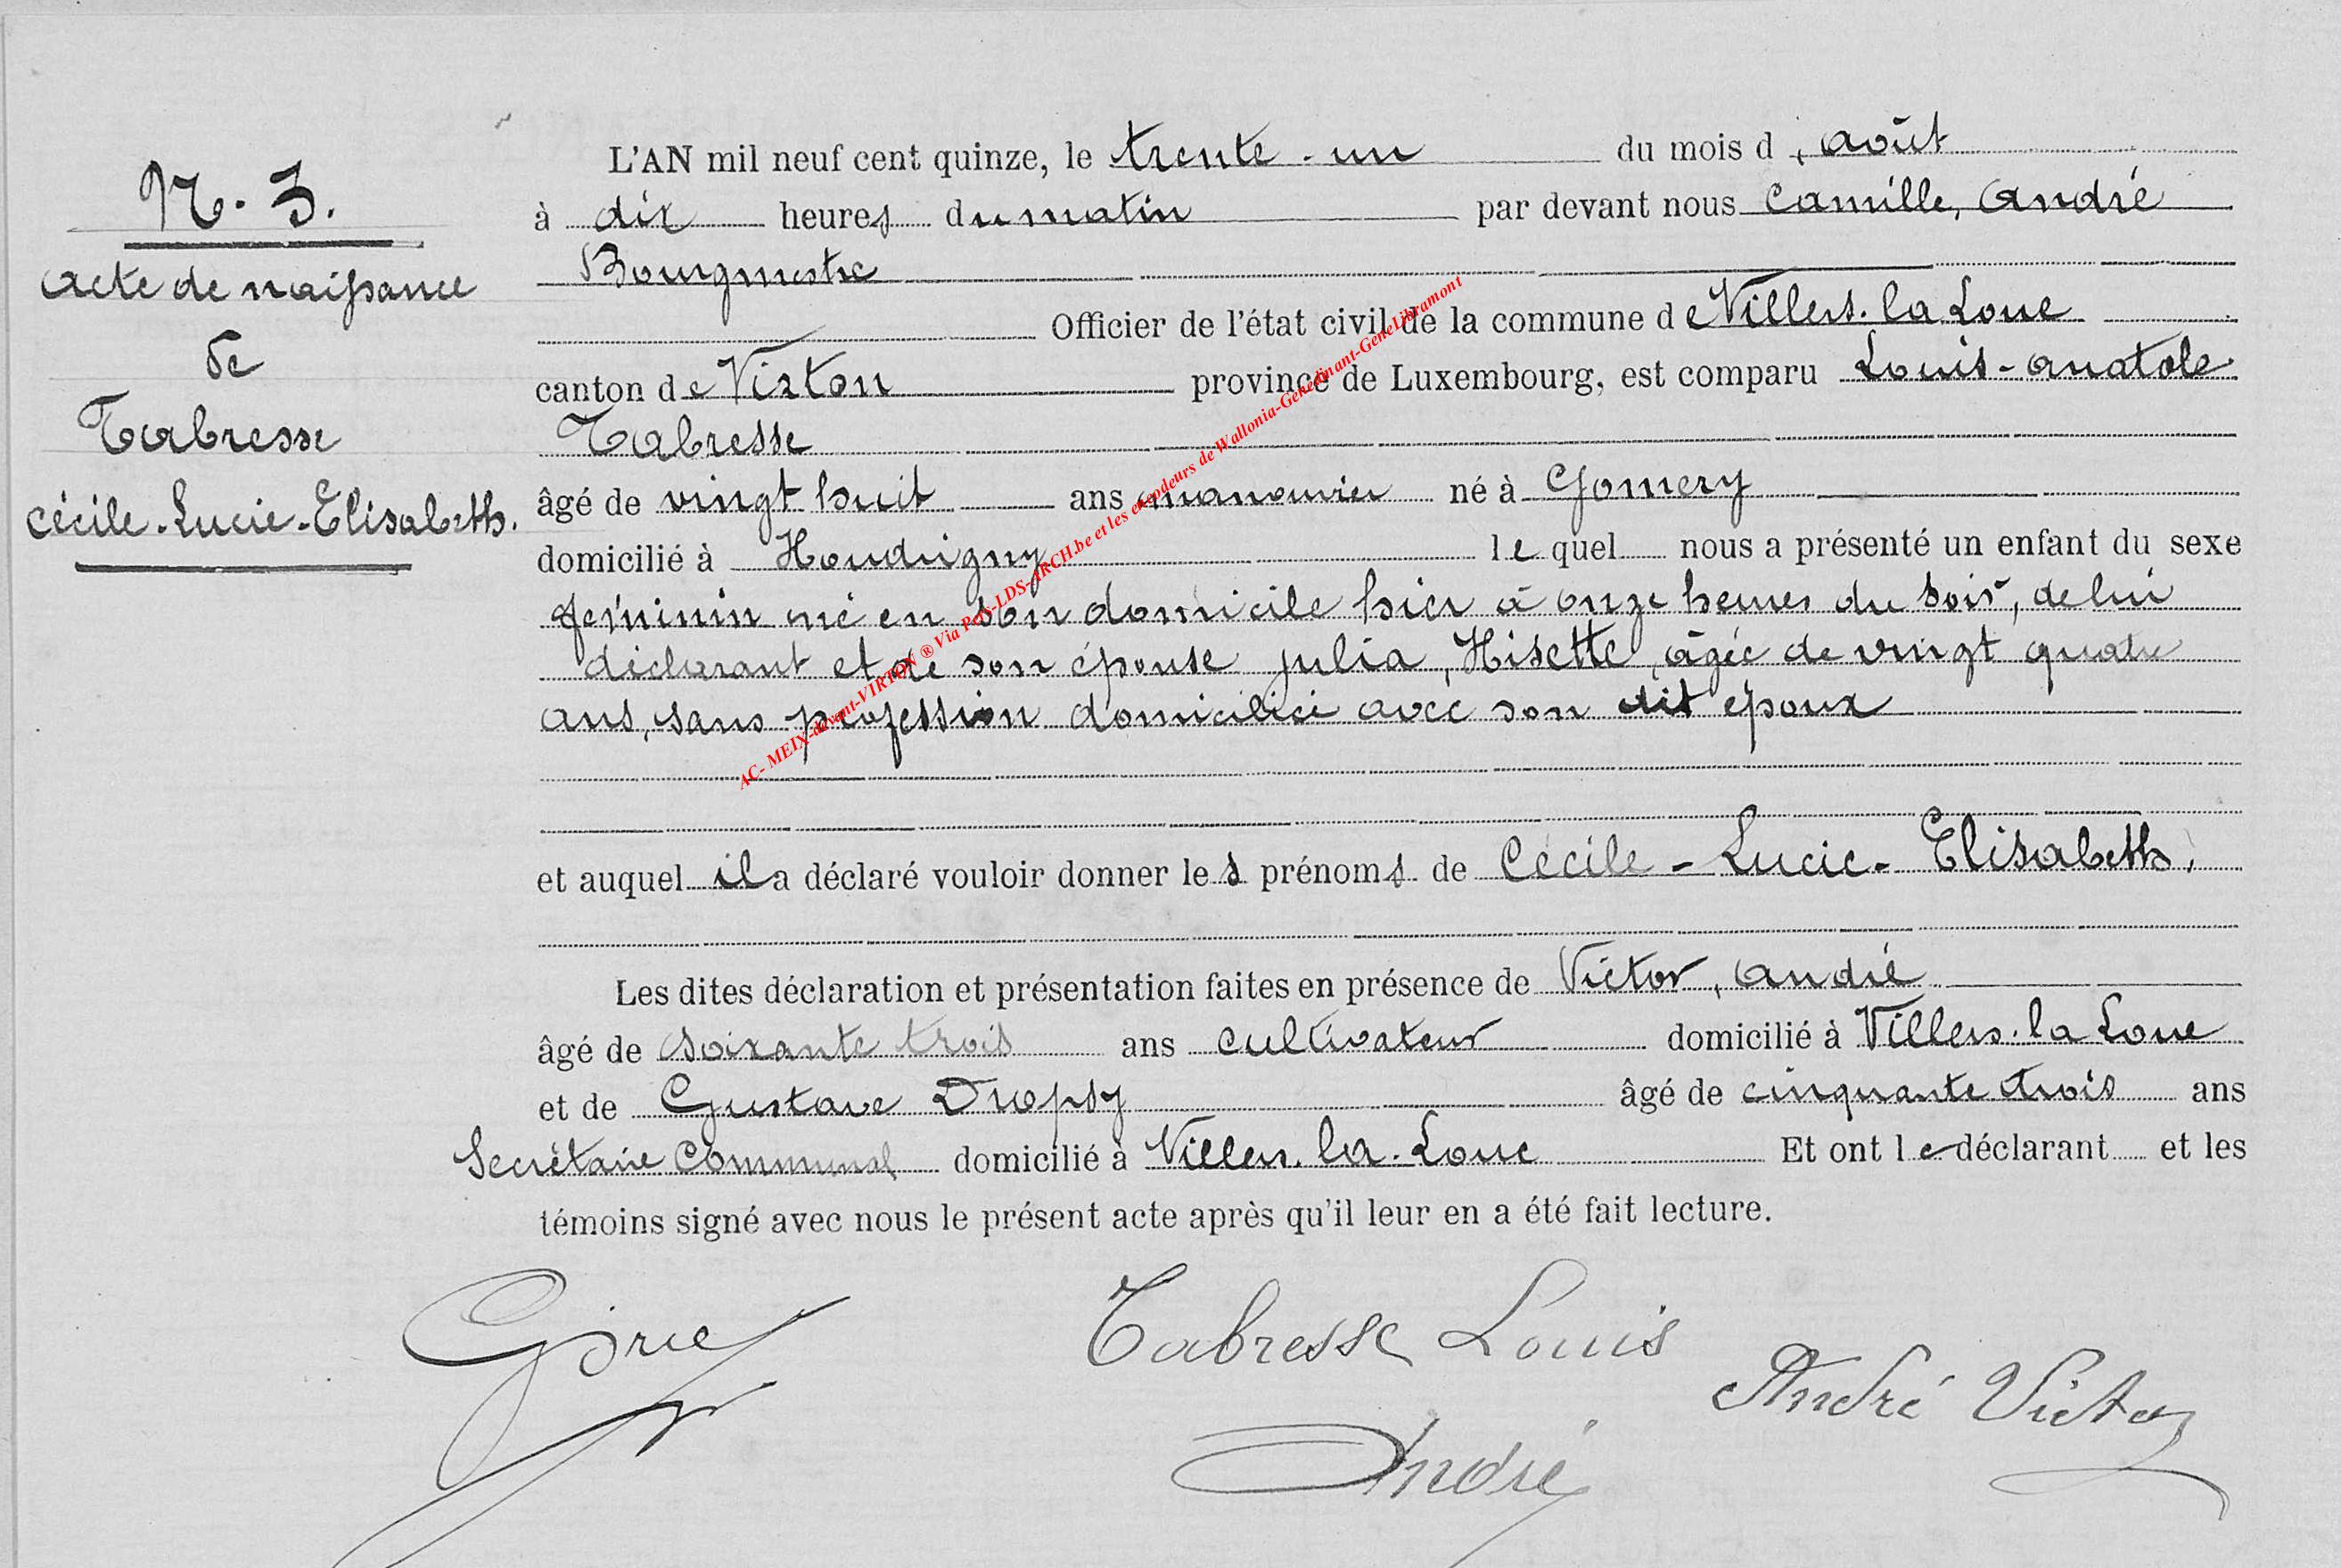 N. 3.
Acte de naissance
de
Tabresse
Cécile-Lucie-Elisabeth.
L'AN mil neuf cent quinze, le trente-un du mois d'août
à dix heures du matin par devant nous Camille, André
Bourgmestre
Officier de l'état civil de la commune de Villers-la-Loue
canton de Virton province de Luxembourg, est comparu Louis-Anatole
Tabresse
âgé de vingt huit ans manouvrier né à Gomery
domicilié à Houdrigny lequel nous a présenté un enfant du sexe
féminin né en son domicile hier à onze heures du soir, de lui
déclarant et de son épouse Julia, Hisette, âgée de vingt quatre
ans, sans profession domiciliée avec son dit époux
et auquel il a déclaré vouloir donner les prénoms de Cécile-Lucie-Elisabeth.
Les dites déclaration et présentation faites en présence de Victor, André
âgé de soixante trois ans cultivateur domicilié à Villers-la-Loue
et de Gustave Dropsy âgé de cinquante trois ans
Secrétaire Communal domicilié à Villers-la-Loue Et ont le déclarant et les
témoins signé avec nous le présent acte après qu'il leur en a été fait lecture.
Tabresse Louis
André Victor
André
AC- MEIX-devant-VIRTON ® Via PdN-LDS-ARCH.be et les encodeurs de Wallonia-Genedinant-GeneLibramont